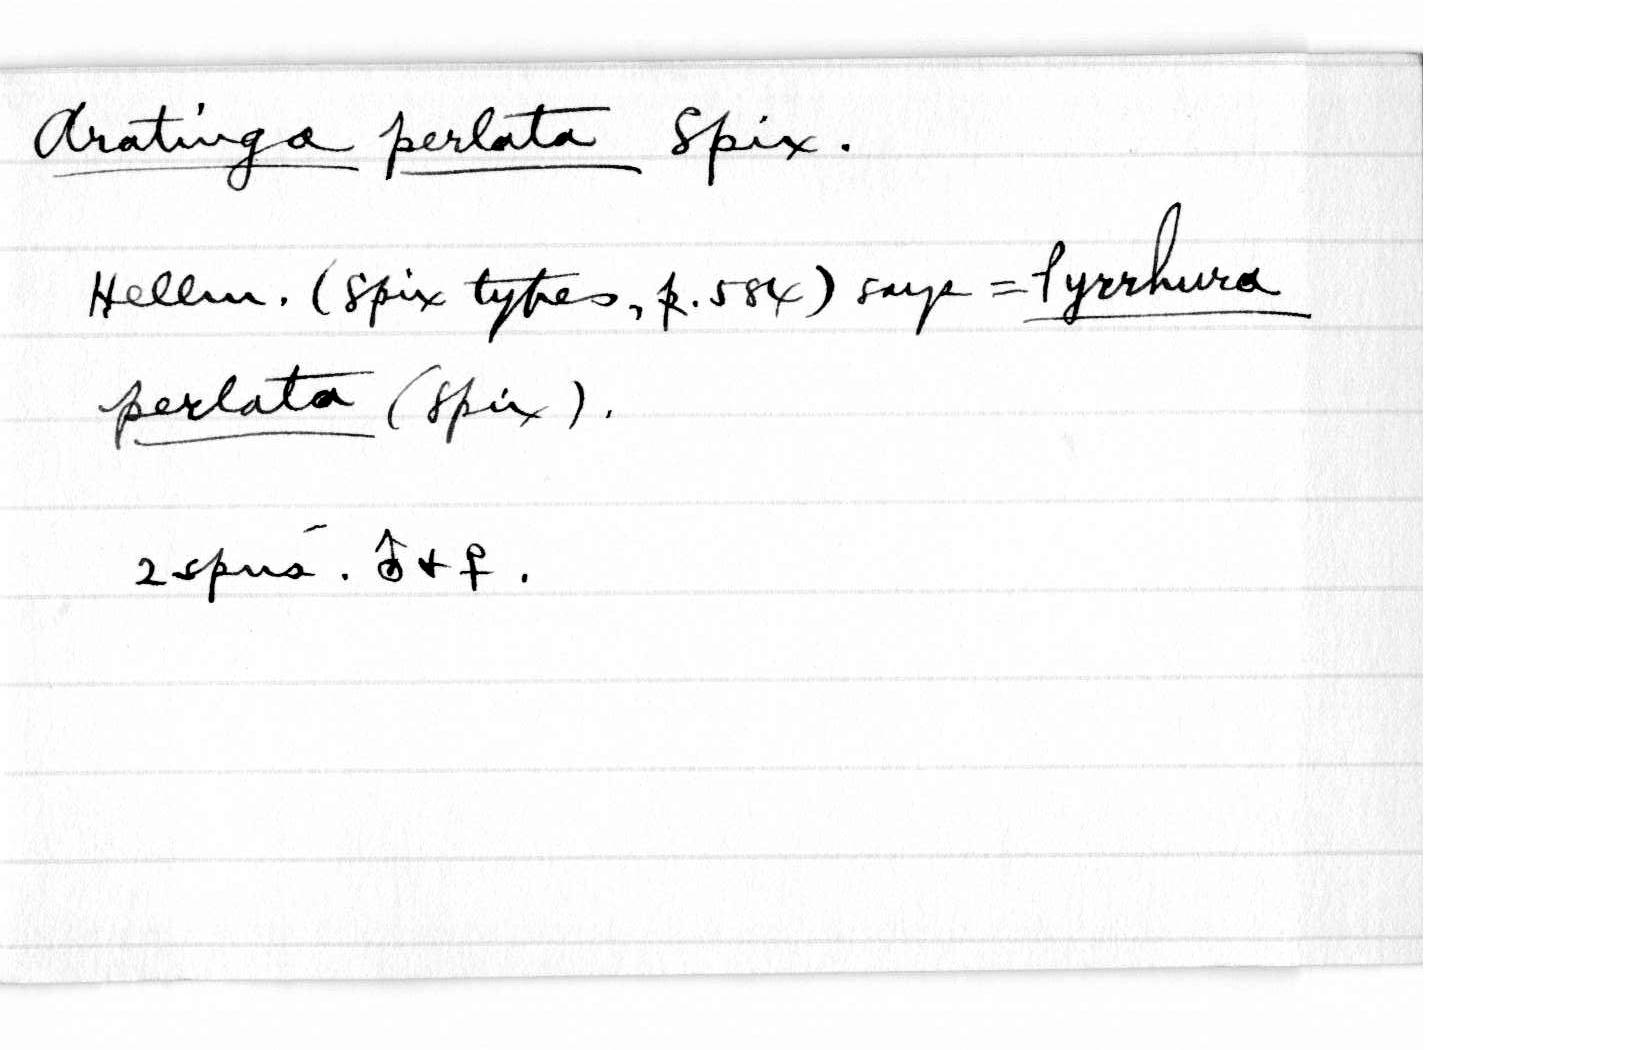 Aratinga perlata Spix.
Hellm. (Spix types, p. 584) says = Pyrrhura
perlata (Spix).
2 spns. ♂ + ♀.